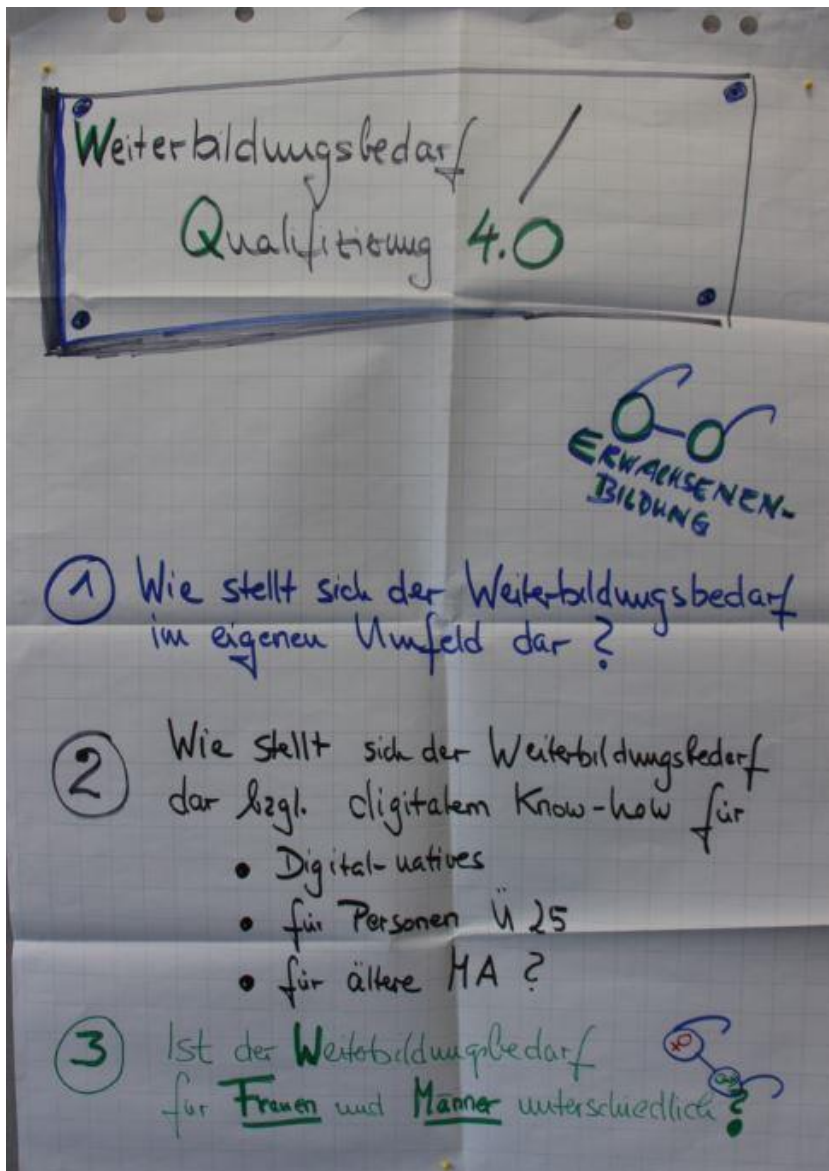 Weiterbildungsbedarf /
Qualifizierung 4.0
ERWACHSENEN-
BILDUNG
1 Wie stellt sich der Weiterbildungsbedarf
im eigenen Umfeld dar?
2 Wie stellt sich der Weiterbildungsbedarf
dar bzgl. digitalem Know-how für
• Digital-natives
• für Personen Ü 25
• für ältere MA?
3 Ist der Weiterbildungsbedarf
für Frauen und Männer unterschiedlich?